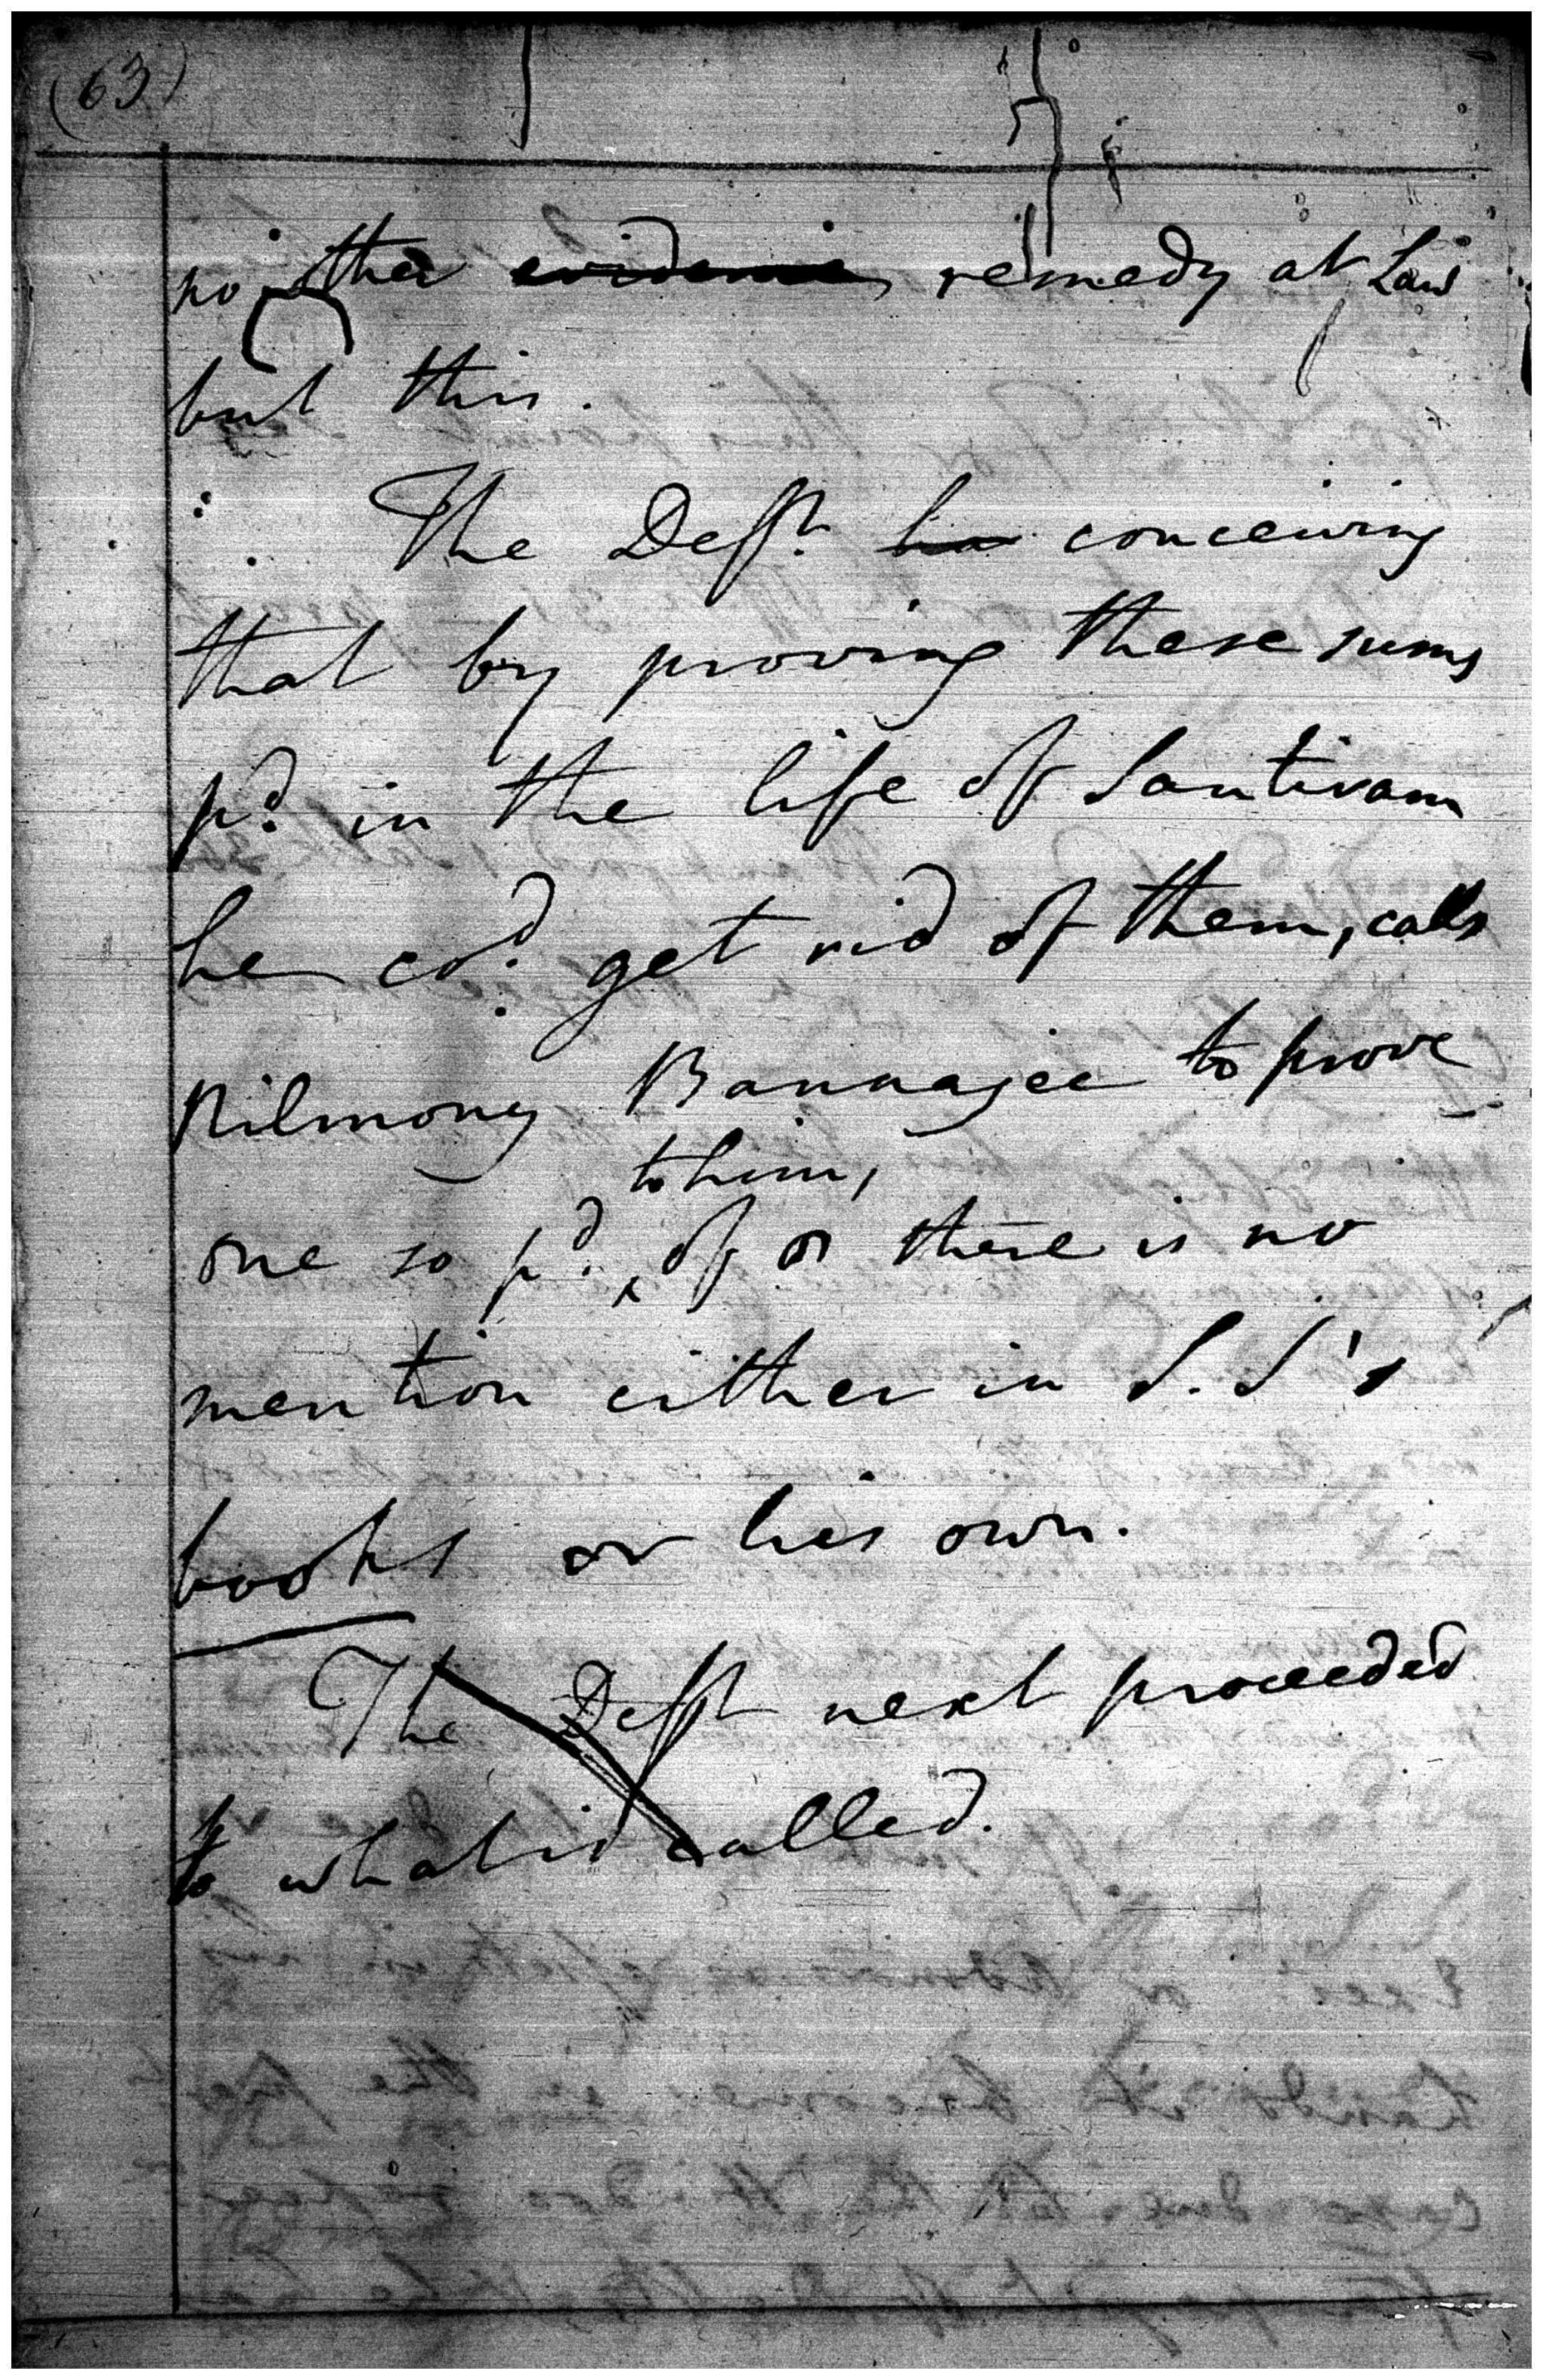 (63)
no other evidence, remedy at Law
but this.
The Defft has conceiving
that by proving these sums
pd. in the life of Santiram
he cod. get rid of them, calls
Nilmony Bannajee to prove
to him,
one so pd. of or there is no
mention either in S. S's
books or his own.
The Defft next proceeded
to what is called.